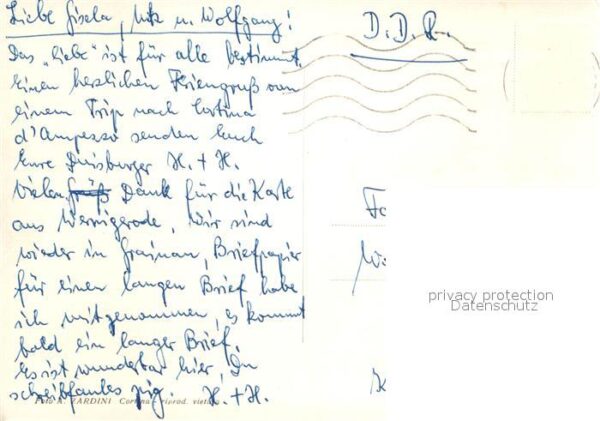 Liebe Gisela, Utz u. Wolfgang!
Das „liebe" ist für alle bestimmt.
Einen herzlichen Feriengruß von
einem Trip nach Cortina
d'Ampezzo senden Euch
Eure Duisburger H. + H.
Vielen Dank für die Karte
aus Wernigerode, wir sind
wieder in Grainau, Briefpapier
für einen langen Brief habe
ich mitgenommen, es kommt
bald ein langer Brief.
Es ist wunderbar hier, Du
schreibfaules pig. H. + H.
Foto A. ZARDINI Cortina - riprod. vietata
D.D.R.
privacy protection
Datenschutz